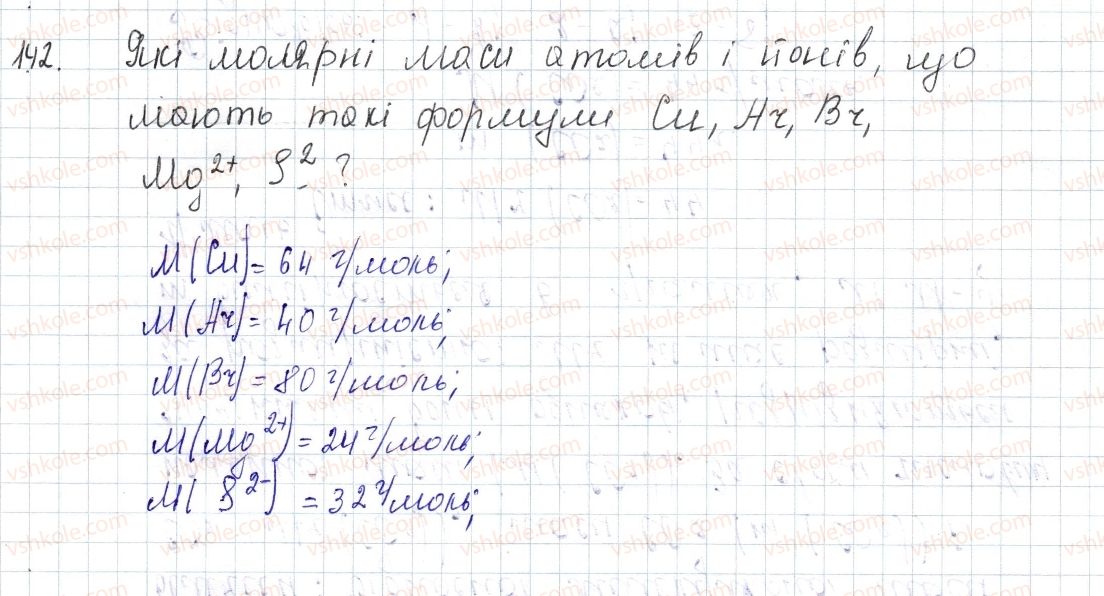 142. Які молярні маси атомів і йонів, що
мають такі формули Cu, Ar, Br,
Mg²⁺, S²₋ ?
M(Cu)= 64 г/моль;
M(Ar)= 40 г/моль;
M(Br)= 80 г/моль;
M(Mg²⁺)= 24 г/моль;
M( S²⁻) = 32 г/моль;